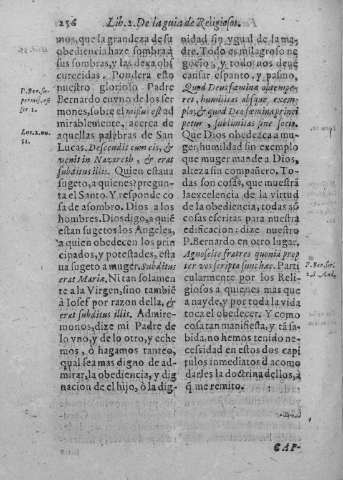 256 Lib. 2. De la guia de Religiosos.
mos, que la grandeza de su
obediencia haze sombra à
sus sombras, y las dexa obs
curecidas. Pondera esto
nuestro glorioso Padre
Bernardo en vno de los ser
mones, sobre el missus est ad
mirablemente, acerca de
aquellas palabras de San
Lucas. Descendit cum eis, &
venit in Nazareth, & erat
subditus illis. Quien estaua
sugeto, a quienes? pregun-
ta el Santo. Y responde co
sa de asombro. Dios a los
hombres. Dios digo, a quié
estan sugetos los Angeles,
a quien obedecen los prin
cipados, y potestades, esta
ua sugeto a muger. Subditus
erat Mariæ. Ni tan solamen
te a la Virgen, sino tambié
à Iosef por razon della, &
erat subditus illis. Admire-
monos, dize mi Padre de
lo vno, y de lo otro, y eche
mos, ò hagamos tanteo,
qual sea mas digno de ad-
mirar, la obediencia, y dig
nacion de el hijo, ò la dig-
nidad sin ygual de la ma-
dre. Todo es milagroso ne
gocio, y todo nos deue
causar espanto, y pasmo.
Quod Deus fæmina obtempe-
ret, humilitas absque exem-
plo, & quod Deo fæmina princi
petur, sublimitas sine socio.
Que Dios obedezca a mu-
ger, humildad sin exemplo
que muger mande a Dios,
alteza sin compañero. To-
das son cosas, que muestrá
la excelencia de la virtud
de la obediencia, todas só
cosas escritas para nuestra
edificacion: dize nuestro
P. Bernardo en otro lugar.
Agnoscite fratres quoniá prop
ter vos scripta sunt hæc. Parti
cularmente por los Reli-
giosos a quienes mas que
a nayde, y por toda la vida
toca el obedecer. Y como
cosa tan manifiesta, y tá sa-
bida, no hemos tenido ne-
cessidad en estos dos capi
tulos inmediatos d acomo
darles la doctrina dellos, à
q̃ me remito.
CAP-
P. Ber. su-
per missus est
Luc. 2. nu.
51.
P. Ber. ser.